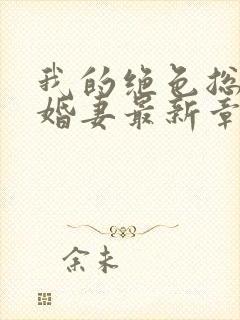 我的绝色总
婚妻最新章
余未